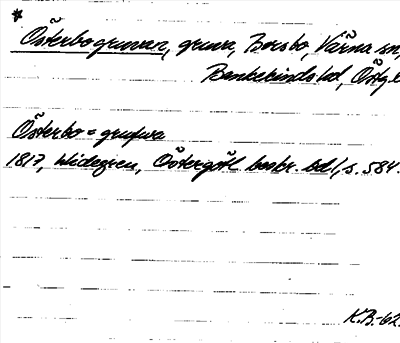 *
Österbogruvan, gruva, Borsbo, Värna sn,
Bankekinds hd, Östg.l
Österbo=grufwa
1817, Widegren, Östergötl. beskr. bd 1, s. 584.
K.B.-62.